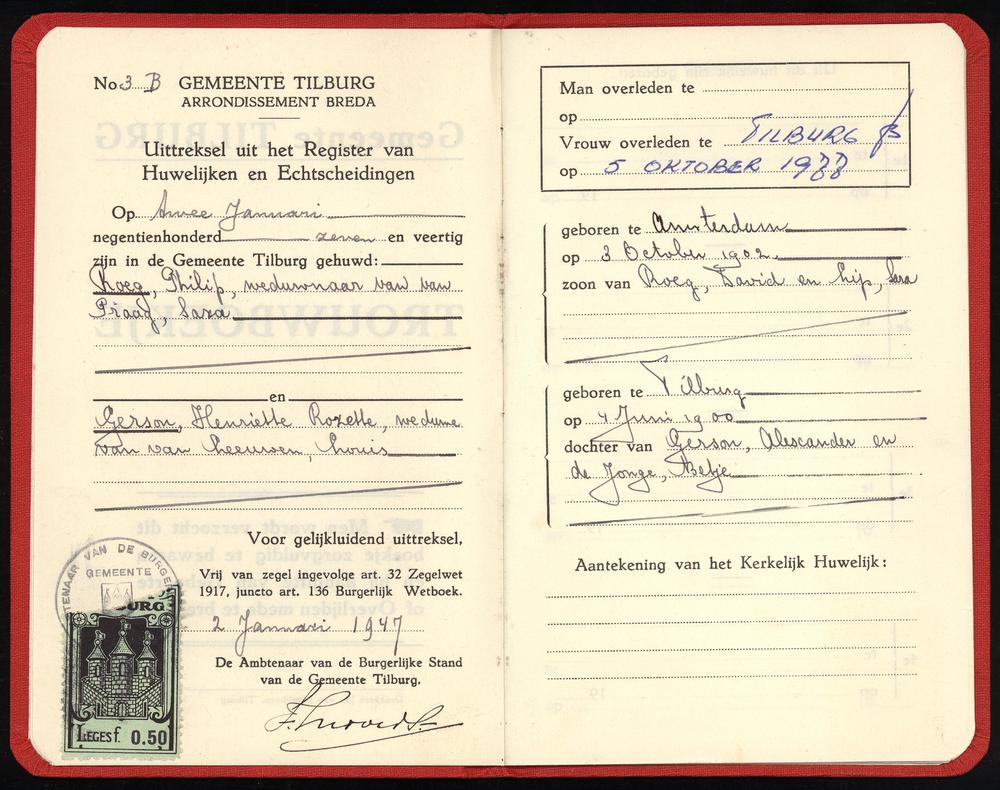 No 3 B GEMEENTE TILBURG
ARRONDISSEMENT BREDA
Uittreksel uit het Register van
Huwelijken en Echtscheidingen
Op twee Januari
negentienhonderd zeven en veertig
zijn in de Gemeente Tilburg gehuwd:
Roeg, Philip, weduwnaar van van
Praag, Sara
en
Gerson, Henriette Rozette, weduwe
van van Leeuwen, Louis
Voor gelijkluidend uittreksel,
Vrij van zegel ingevolge art. 32 Zegelwet
1917, juncto art. 136 Burgerlijk Wetboek.
2 Januari 1947
De Ambtenaar van de Burgerlijke Stand
van de Gemeente Tilburg,
TENAAR VAN DE BURGE
GEMEENTE
BURG
LEGES f. 0.50
Man overleden te
op
Vrouw overleden te TILBURG
op 5 OKTOBER 1988
geboren te Amsterdam
op 3 October 1902
zoon van Roeg, David en Lip, Sara
geboren te Tilburg
op 4 Juni 1900
dochter van Gerson, Alexander en
de Jonge, Betje
Aantekening van het Kerkelijk Huwelijk: